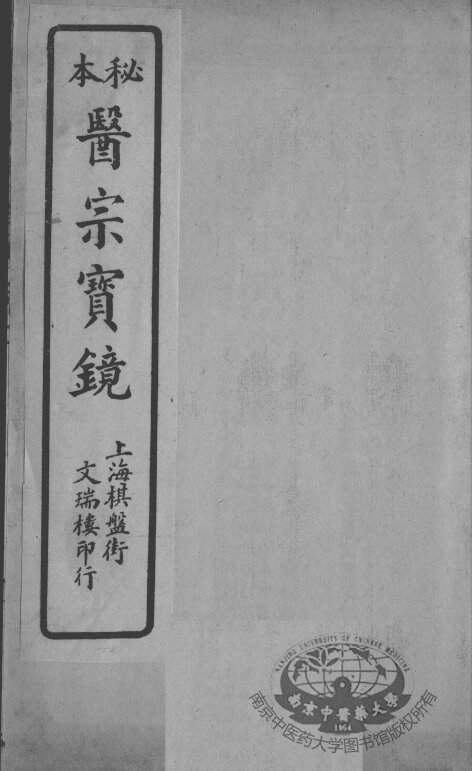 秘本
醫宗寶鏡
上海棋盤街
文瑞樓印行
NANJING UNIVERSITY OF CHINESE MEDICINE
南京中醫藥大學
1954
南京中医药大学图书馆版权所有